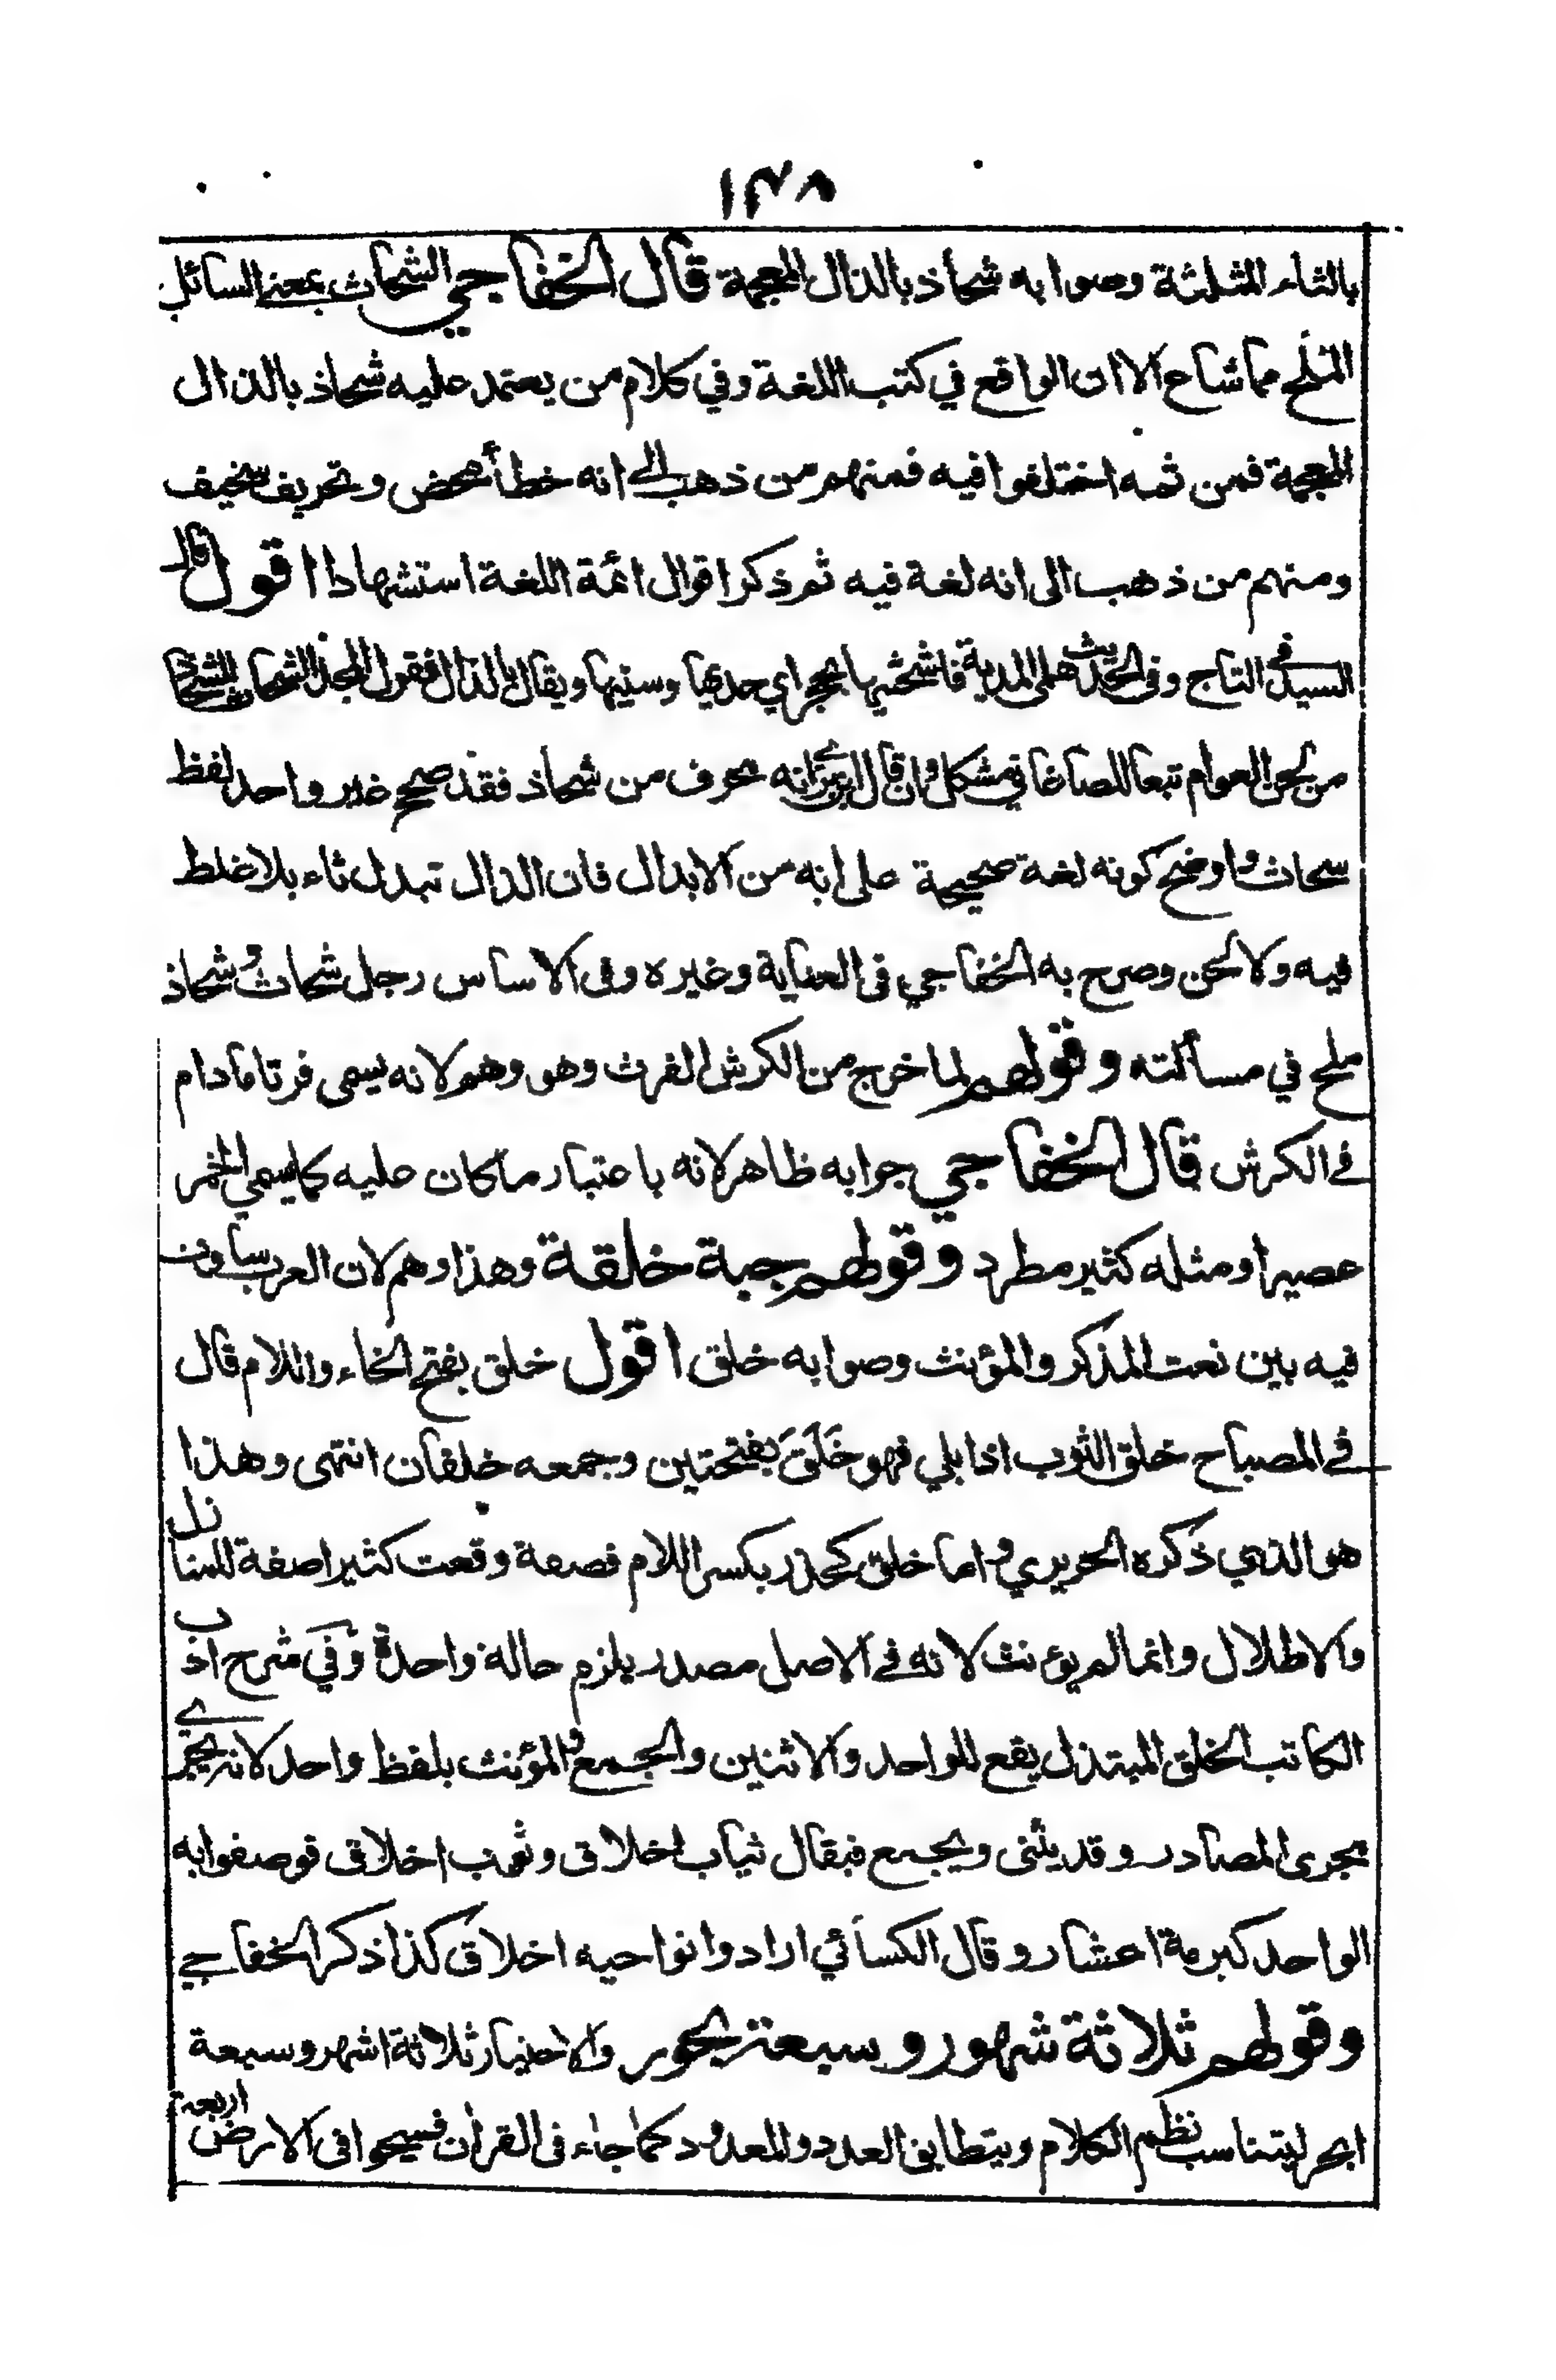 ١٣٨
بالثاء المثلثة وصوابه شحاذ بالذال المعجمة قال الخفاجي الشحاث بمعنى السائل
الملح مما شاع الا ان الواقع في كتب اللغة وفي كلام من يعتمد عليه شحاذ بالذال
المعجمة فمن ثمه اختلفوا فيه فمنهم من ذهب الى انه خطأ محض وتحريف سخيف
ومنهم من ذهب الى انه لغة فيه ثم ذكر اقوال ائمة اللغة استشهادا اقول قال
السيد في التاج وفي الحديث هلمي المدية فاشحثيها بحجر اي حديها وسنيها ويقال بالذال فقول المجد الشحاث للشحاذ
من لحن العوام تبعا للصاغاني مشكل وان قال ابن بري انه محرف من شحاذ فقد صحح غير واحد لفظ
سحاث واوضح كونه لغة صحيحة على انه من الابدال فان الذال تبدل ثاء بلا غلط
فيه ولا لحن وصرح به الخفاجي في العناية وغيره وفي الاساس رجل شحاث وشحاذ
ملح في مسألته وقولهم لما خرج من الكرش الفرث وهو وهم لانه يسمى فرثا ما دام
في الكرش قال الخفاجي جوابه ظاهر لانه باعتبار ما كان عليه كما يسمى الخمر
عصيرا ومثله كثير مطرد وقولهم جبة خلقة وهذا وهم لان العرب ساوت
فيه بين نعت المذكر والمؤنث وصوابه خلق اقول خلق بفتح الخاء واللام قال
في المصباح خلق الثوب اذا بلي فهو خَلَقَ بفتحتين وجمعه خلقان انتهى وهذا
هو الذي ذكره الحريري واما خلق كحذر بكسر اللام فصفة وقعت كثيرا صفة للمنازل
والاطلال وانما لم يؤنث لانه في الاصل مصدر يلزم حالة واحدة وفي شرح ادب
الكاتب الخلق المبتذل يقع للواحد والاثنين والجمع والمؤنث بلفظ واحد لانه يجري
مجرى المصادر وقد يثنى ويجمع فيقال ثياب اخلاق وثوب اخلاق فوصفوا به
الواحد كبرمة اعشار وقال الكسائي ارادوا نواحيه اخلاق كذا ذكر الخفاجي
وقولهم ثلاثة شهور وسبعة بحور والاختيار ثلاثة اشهر وسبعة
ابحر ليتناسب نظم الكلام ويتطابق العدد والمعدود كما جاء في القرآن فسيحوا في الارض اربعة